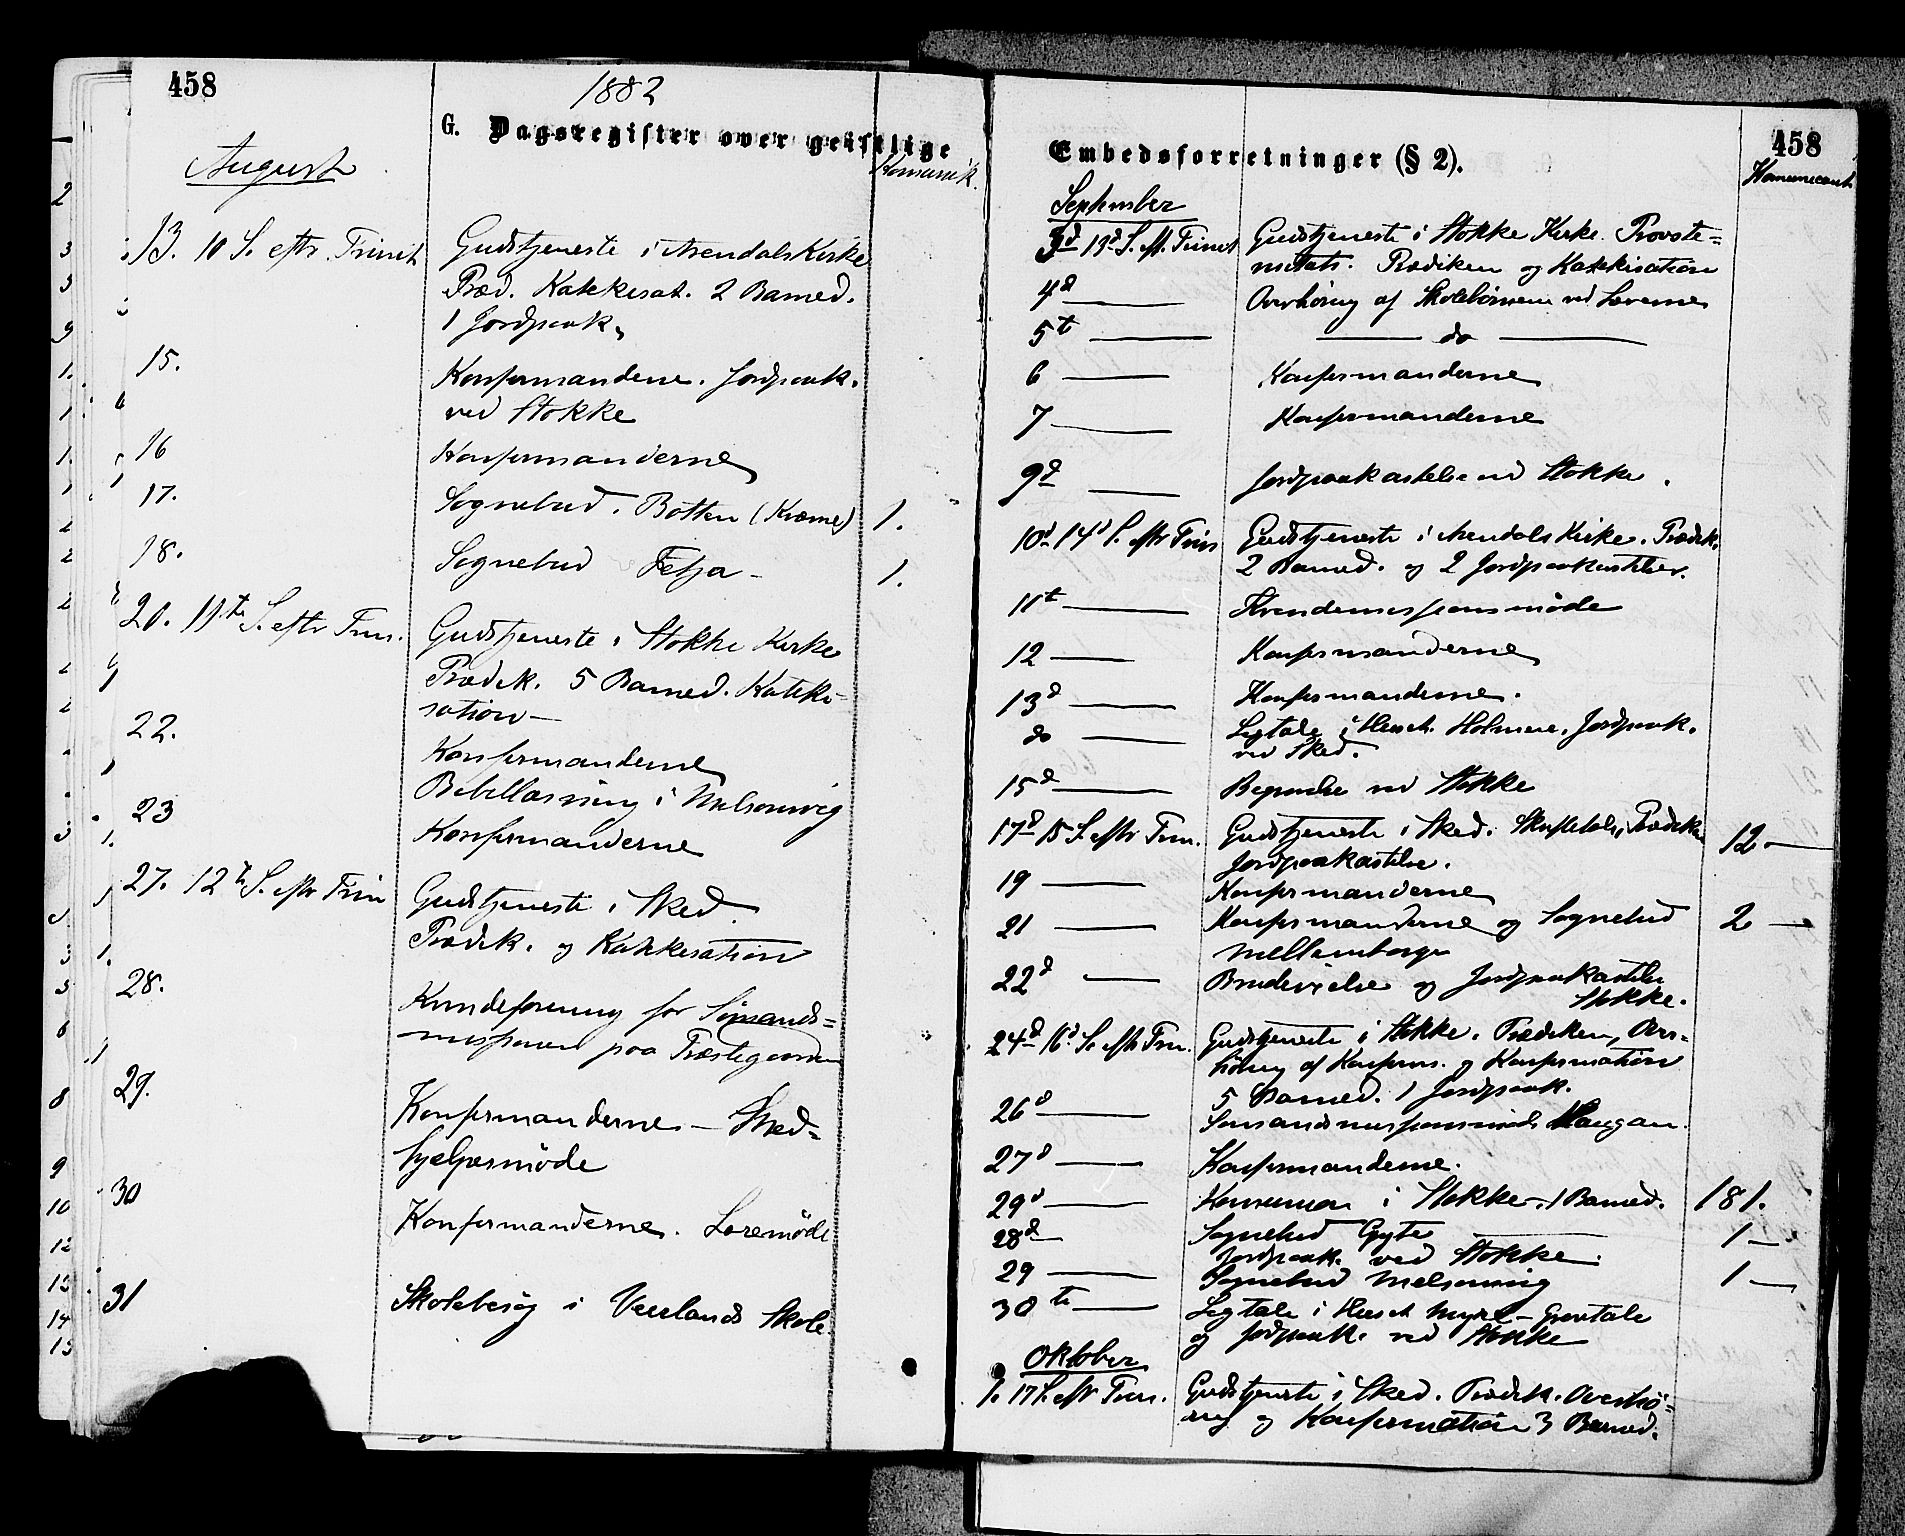 458
1882
G. Dagsregister over geistlige
Komunik.
August
13. 10 S. eftr. Trinit
Gudstjeneste i Arendals Kirke
Præd. Katekisat. 2 Barned.
1 Jordpaak.
15.
Konfirmanderne. Jordpaak.
ved Stokke
16
Konfirmanderne
17.
Sognebud. Botten (Kræmer) 1.
18.
Sognebud Fetja - 1.
20. 11te S. eftr Trin.
Gudstjeneste i Stokke Kirke
Prædik. 5 Barned. Kateki-
sation -
22.
Konfirmanderne
Bibellæsning i Melsomvig
23
Konfirmanderne
27. 12te S. eftr Trin
Gudstjeneste i Skee
Prædik. og Katekisation
28.
Kvindeforening for Sömands=
missionen paa Præstegaarden
29.
Konfirmanderne -
hjelpermöde
30
Konfirmanderne. Læremöde
31
Skolebesög i Veerlands Skole.
Embedsforretninger (§ 2).
458
Komunicant.
September
3d 13d S. eft. Trinit
Gudstjeneste i Stokke Kirke. Provste=
visitats. Prædiken og Katekisation
4d
Overhöring af Skolebörnene ved Lærerne
5te
do
6
Konfirmanderne
7
Konfirmanderne
9d
Jordpaakastelse ved Stokke.
10d 14d S. eftr Trin
Gudstjeneste i Arendals Kirke. Prædik.
2 Barned. og 2 Jordpaakastelser.
11te
Kvindemissionsmöde
12
Konfirmanderne
13d
Konfirmanderne.
do
Ligtale i Huset Holmene. Jordpaak.
ved Skee.
15d
Begravelse ved Stokke
17d 15 S. eftr Trin.
Gudstjeneste i Skee. Skriftetale, Prædiken 12 -
Jordpaakastelse.
19
Konfirmanderne
21
Konfirmanderne og Sognebud 2 -
Mellemborge
22d
Brudevielse og Jordpaakastelse
Stokke.
24d 16d S. eftr Trin.
Gudstjeneste i Stokke. Prædiken, Over-
höring af Konfirm. og Konfirmation
5 Barned. 1 Jordpaak.
26d
Sömandsmissionsmöde Haugan.
27d
Konfirmanderne.
29d
Komunion i Stokke. 1 Barned. 181.
28d
Sognebud Gyte 1 -
Jordpaak. ved Stokke.
29
Sognebud Melsomvig 1 -
30te
Ligtale i Huset Myre - Gravtale
og Jordpaak. ved Stokke
Oktober
1. 17 S. eftr Trin.
Gudstjeneste i Skee. Prædik. Overhö=
ring og Konfirmation 3 Barned.